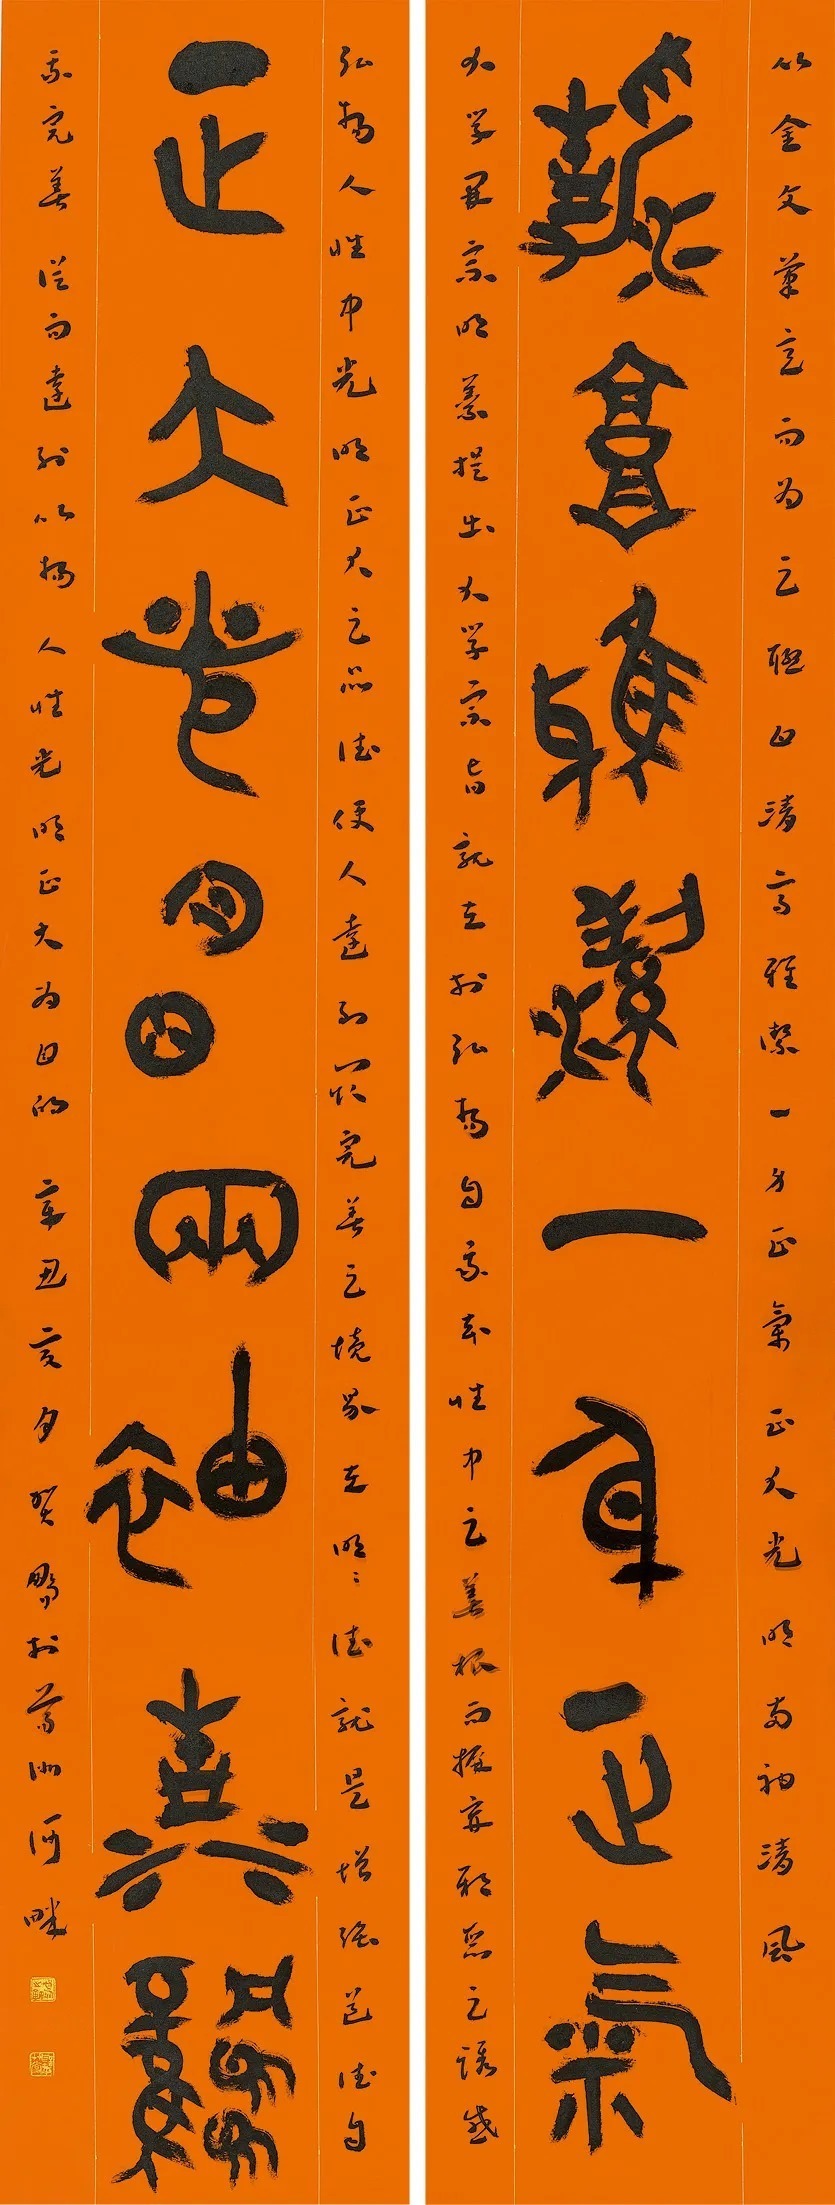 以金文筆意而为之聯曰清高雅潔一身正氣正大光明両袖清風
清高雅潔一身正氣
大学開宗明義提出大学宗旨就在於弘揚自家本性中之善根而摒棄邪惡之誘惑
弘揚人性中光明正大之品德使人達到最完善之境界在明明德就是增強道德自
正大光明兩袖清風
我完善從而達到以揚人性光明正大为目的辛丑亥月賀鵬於洲河畔